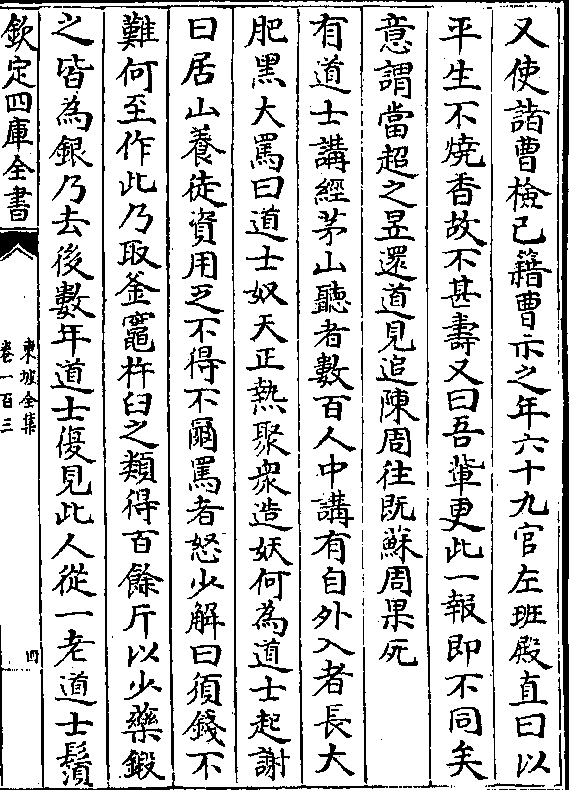 又使諸曹檢己籍曹示之年六十九官左班殿直曰以
平生不燒香故不甚壽又曰吾輩更此一報即不同矣
意謂當超之昱還道見追陳周往既蘇周果死
有道士講經茅山聽者數百人中講有自外入者長大
肥黑大罵曰道士奴天正熱聚衆造妖何為道士起謝
曰居山養徒資用乏不得不爾罵者怒少解曰須錢不
難何至作此乃取釜竈杵臼之類得百餘斤以少藥鍛
之皆為銀乃去後數年道士復見此人從一老道士鬚
欽定四庫全書
東坡全集
卷一百三
四